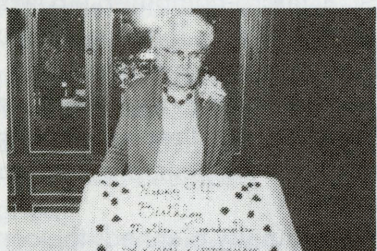 Happy 94th
Birthday
Mother, Grandmother
and Great Grandmother